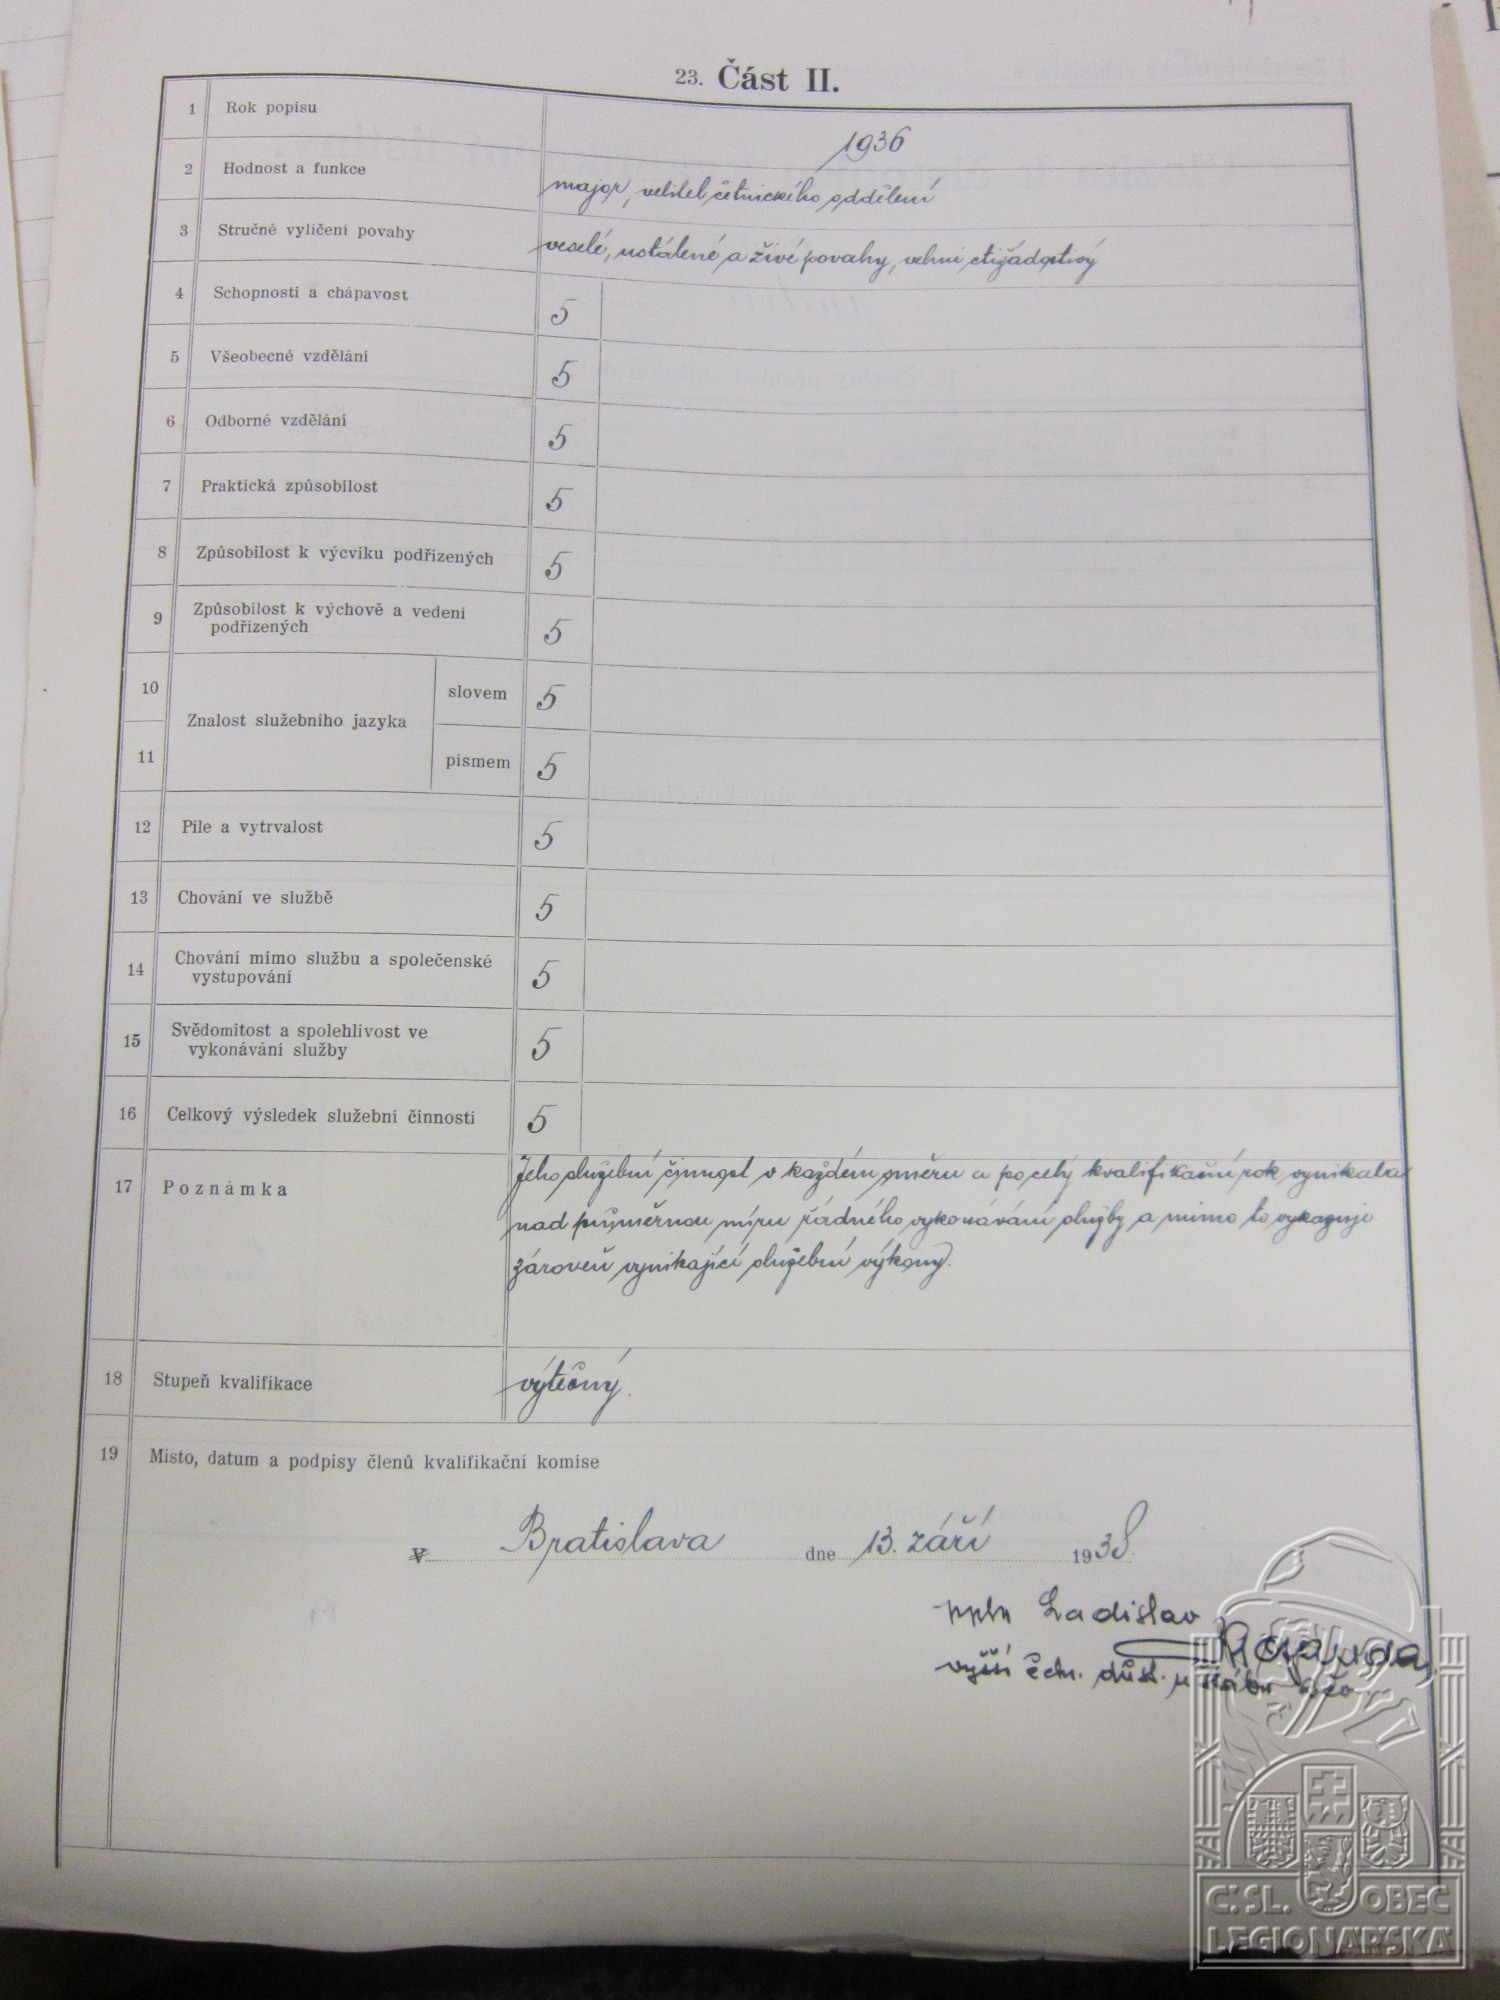 23. Část II.
1 Rok popisu 1936
2 Hodnost a funkce major, velitel četnického oddělení
3 Stručné vylíčení povahy veselé, ustálené a živé povahy, velmi ctižádostivý
4 Schopnosti a chápavost 5
5 Všeobecné vzdělání 5
6 Odborné vzdělání 5
7 Praktická způsobilost 5
8 Způsobilost k výcviku podřízených 5
9 Způsobilost k výchově a vedení
podřízených 5
10 slovem 5
Znalost služebního jazyka
11 písmem 5
12 Píle a vytrvalost 5
13 Chování ve službě 5
14 Chování mimo službu a společenské
vystupování 5
15 Svědomitost a spolehlivost ve
vykonávání služby 5
16 Celkový výsledek služební činnosti 5
17 Poznámka Jeho služební činnost v každém směru a po celý kvalifikační rok vynikala
nad průměrnou míru řádného vykonávání služby a mimo to vykazuje
zároveň vynikající služební výkony.
18 Stupeň kvalifikace výtečný.
19 Místo, datum a podpisy členů kvalifikační komise
V Bratislava dne 13. září 1938.
pplk Ladislav
vyšší četn. důst. u štábu
Č.SL. OBEC
LEGIONÁŘSKÁ